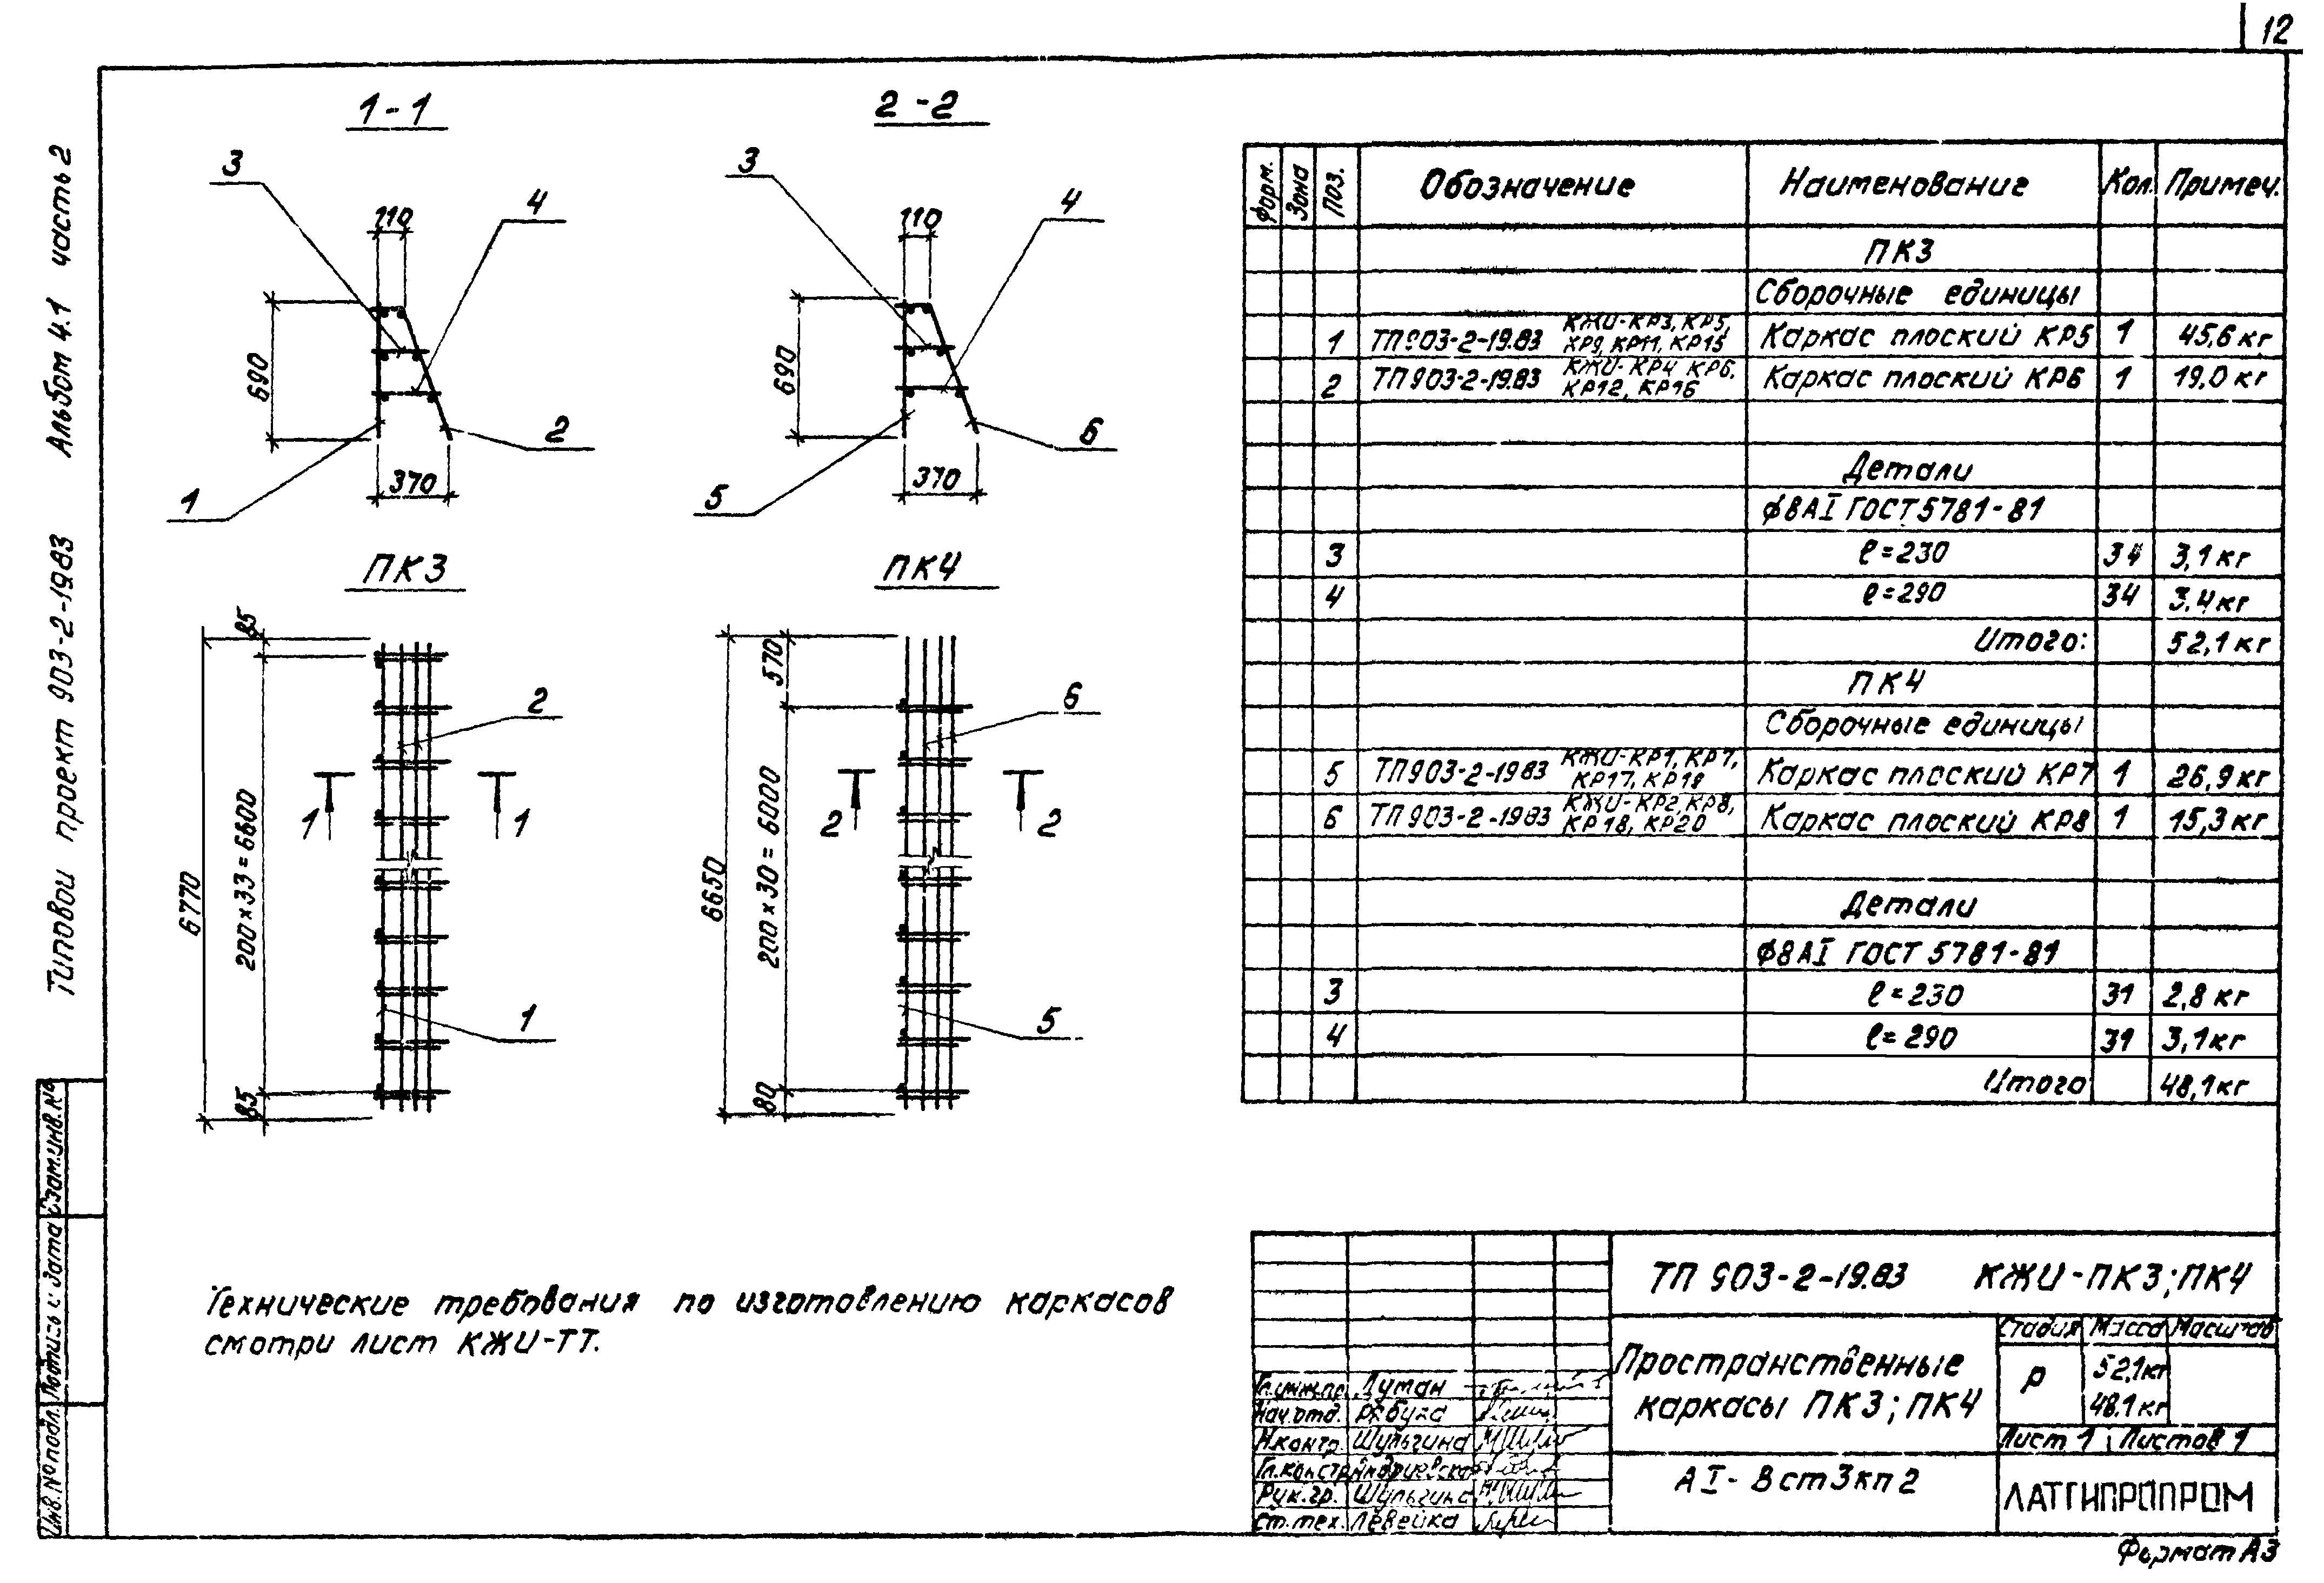 12
Типовой проект 903-2-19.83 Альбом 4.1 часть 2
1-1
3
4
110
690
370
1
2
2-2
3
4
110
690
370
5
6
ПК3
85
6770
200×33=6600
85
2
1
1
1
ПК4
570
6650
200×30=6000
80
6
2
2
5
Форм. Зона Поз. Обозначение Наименование Кол. Примеч.
ПК3
Сборочные единицы
1 ТП903-2-19.83 КЖИ-КР3, КР5, КР9, КР11, КР15 Каркас плоский КР5 1 45,6 кг
2 ТП903-2-19.83 КЖИ-КР4 КР6, КР12, КР16 Каркас плоский КР6 1 19,0 кг
Детали
ϕ8АІ ГОСТ 5781-81
3 ℓ=230 34 3,1 кг
4 ℓ=290 34 3,4 кг
Итого: 52,1 кг
ПК4
Сборочные единицы
5 ТП903-2-1983 КЖИ-КР1, КР7, КР17, КР19 Каркас плоский КР7 1 26,9 кг
6 ТП903-2-1983 КЖИ-КР2, КР8, КР18, КР20 Каркас плоский КР8 1 15,3 кг
Детали
ϕ8АІ ГОСТ 5781-81
3 ℓ=230 31 2,8 кг
4 ℓ=290 31 3,1 кг
Итого 48,1 кг
Технические требования по изготовлению каркасов
смотри лист КЖИ-ТТ.
Взам.инв.№
Подпись и дата
Инв.№ подл.
ТП 903-2-19.83 КЖИ-ПК3; ПК4
Пространственные
каркасы ПК3; ПК4
Стадия Масса Масштаб
Р 52,1кг
48.1 кг
Лист 1 Листов 1
АІ-Вст3кп2
ЛАТГИПРОПРОМ
Гл.инж.пр. Думан
Нач.отд.
Н.контр. Шульгина
Гл.констр.
Рук.гр. Шульгина
Ст.тех. Левейка
Формат А3